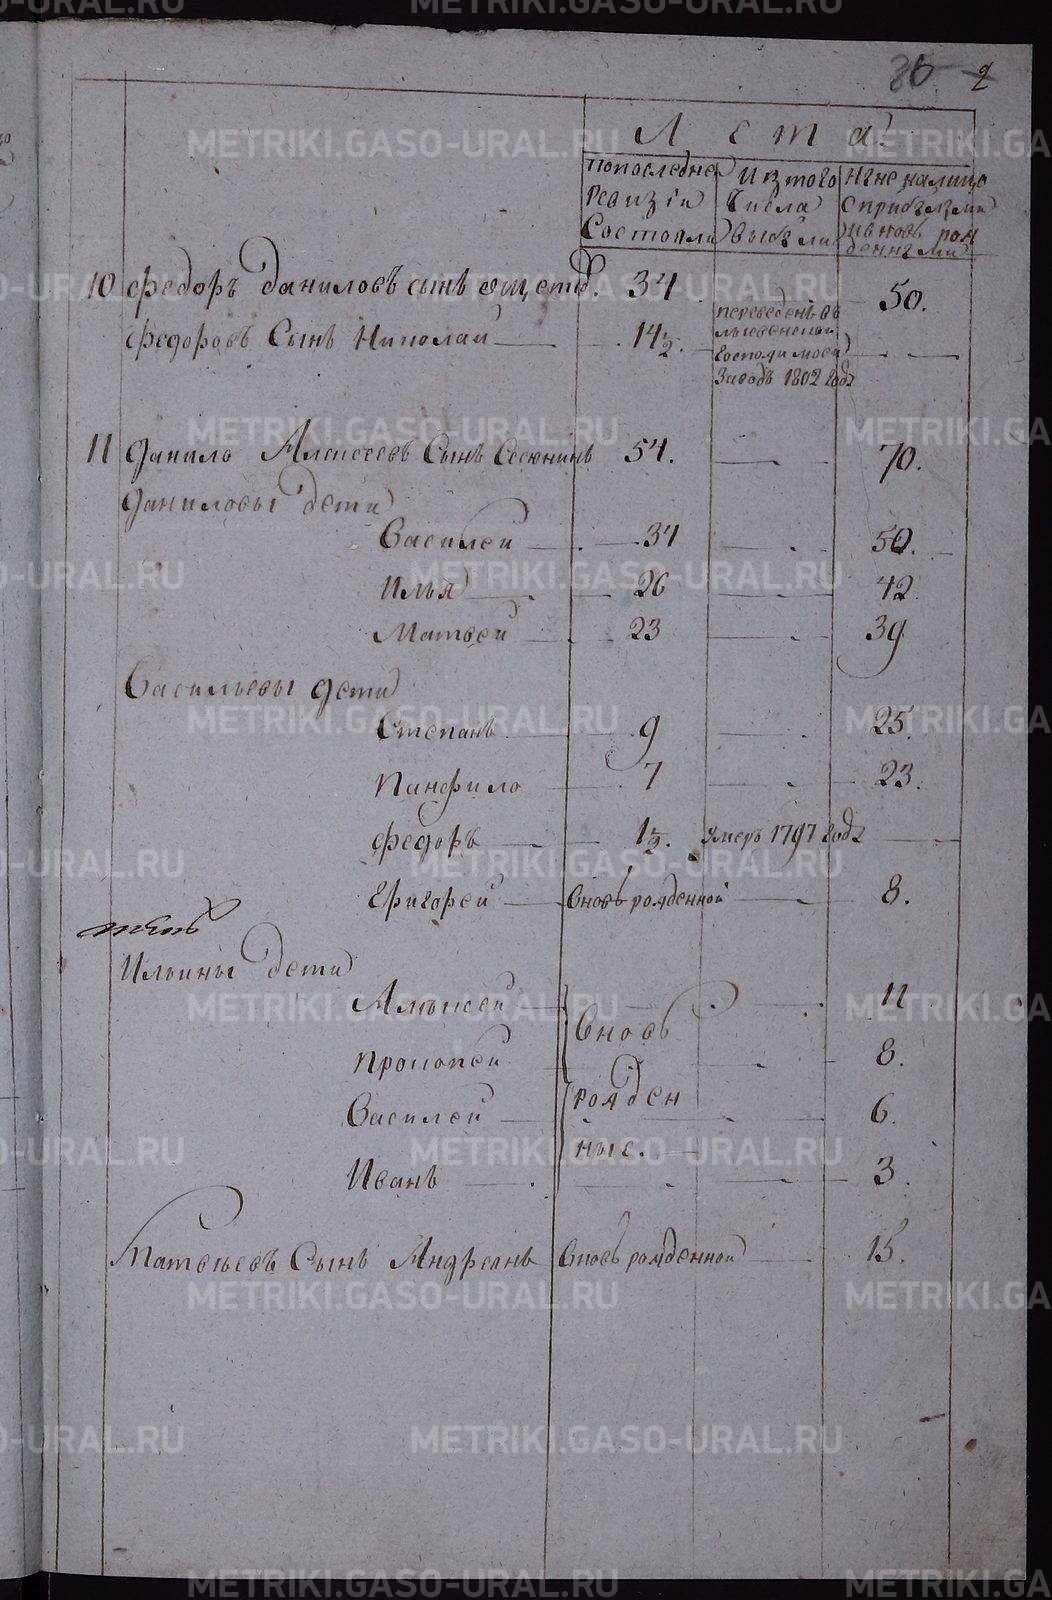 36 2
Лета
попоследне ревизiи состояли
изтого числа выбыли
ныне налицо сприбылыми ивновь рожденными
10 Федоръ Даниловъ сынъ 34 50.
Федоровъ Сынъ Николай 14 1/2.
переведенъ въ
Господи мой
Заводъ 1802 года
11 Данило Алексеевъ Сынъ Сесюнинъ 54. 70.
Даниловы дети
Василей 34 50.
Илья 26 42
Матвей 23 39
Васильевы дети
Степанъ 9 25.
Панфило 7 23.
Федоръ 1 1/2. умеръ 1797 года
Григорей вновь рожденной 8.
Ильины дети
Алексей 11
вновь
Прокопей 8.
Василей рожден 6.
ные.
Иванъ 3.
Матвеевъ Сынъ Андреянъ вновь рожденной 15.
METRIKI.GASO-URAL.RU